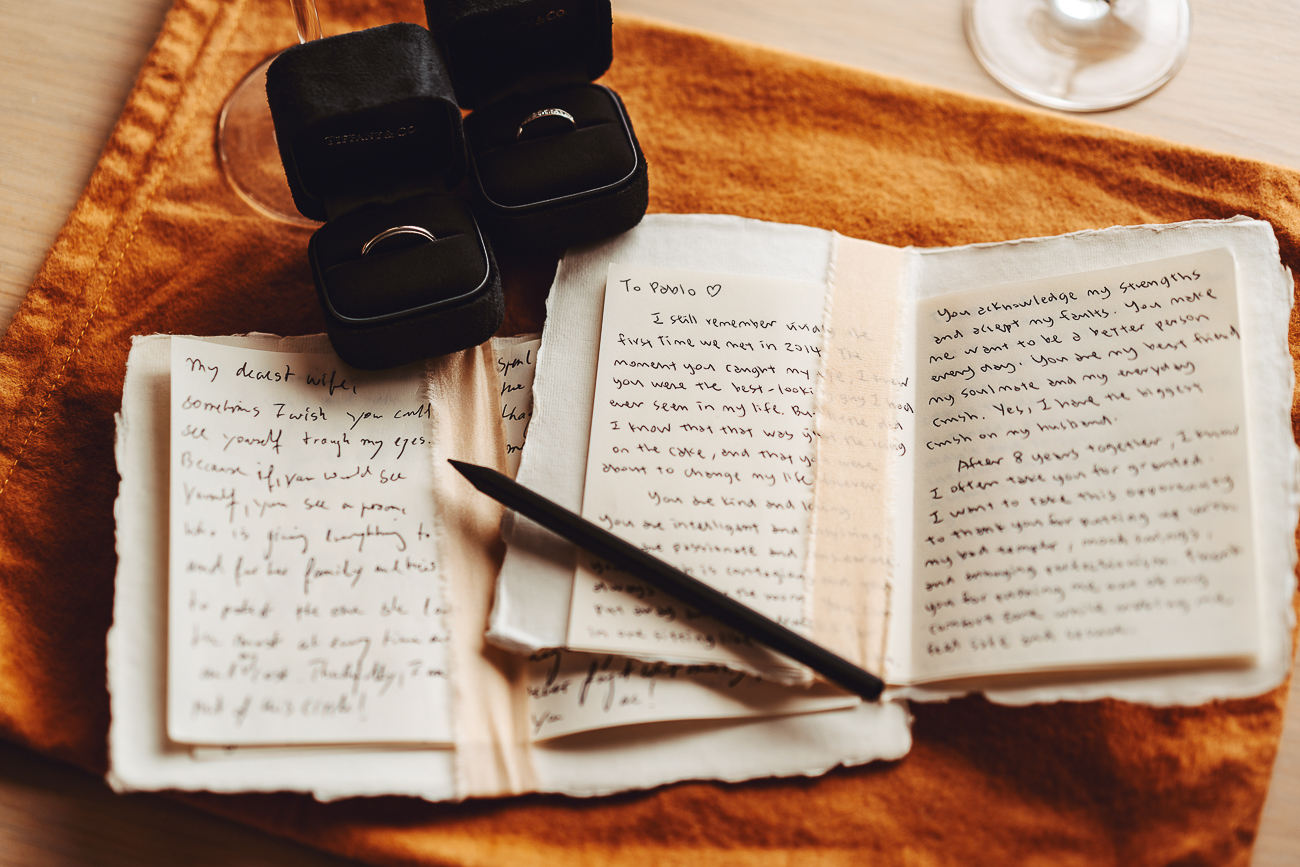 TIFFANY & CO
& CO
My dearest wife,
sometims I wish you could
see yourself trough my eyes.
Because if you would see
yourself, you see a person
who is giving everything to
and for her family and tries
to protect the one she
at every time
out of this circle!
spent
the
To Pablo ♡
I still remember vivid
first time we met in 2014. The
moment you caught my eye, I knew
you were the best-looking guy I had
ever seen in my life. But
I know that that was just the icing
on the cake, and that you were
about to change my life forever.
You are kind and
you are intelligent and
you are passionate and
is contagious
always
You acknowledge my strengths
and accept my faults. You make
me want to be a better person
every day. You are my best friend
my soulmate and my everyday
crush. Yes, I have the biggest
crush on my husband.
After 8 years together, I know
I often take you for granted.
I want to take this opportunity
to thank you for putting up with
my bad temper, mood swings,
and annoying perfectionism. Thank
you for pushing me out of my
comfort zone while making me
feel safe and secure.